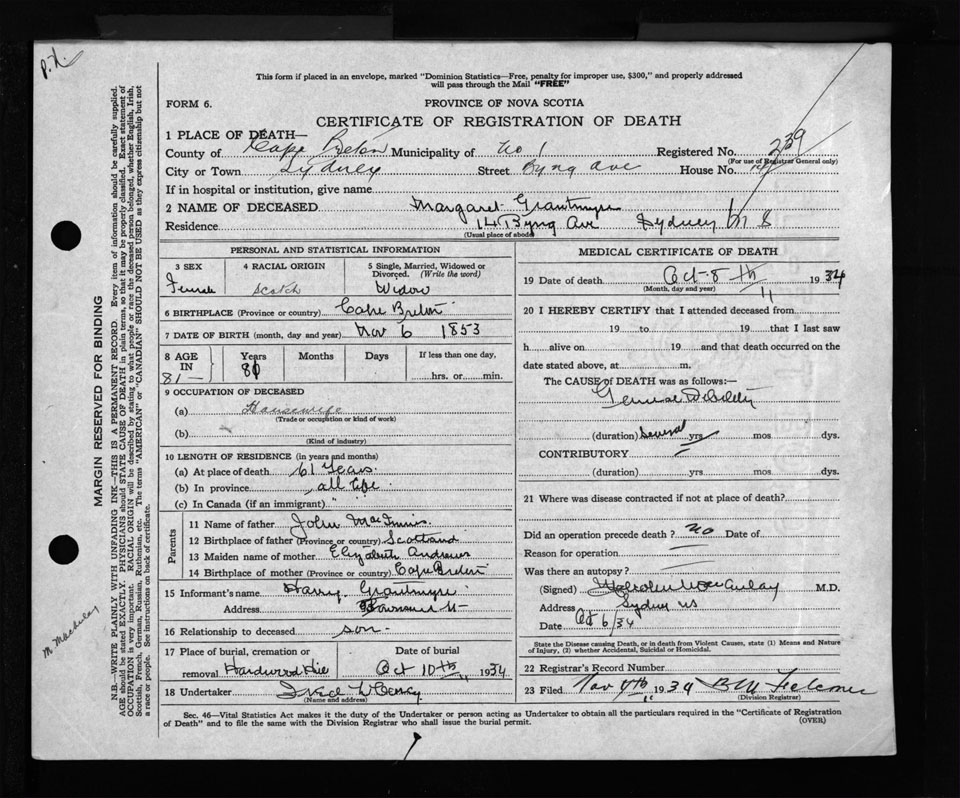 P.X.
This form if placed in an envelope, marked "Dominion Statistics—Free, penalty for improper use, $300," and properly addressed
will pass through the Mail "FREE"
FORM 6.
PROVINCE OF NOVA SCOTIA
CERTIFICATE OF REGISTRATION OF DEATH
1 PLACE OF DEATH—
County of Cape Breton Municipality of No 1 Registered No. 239
(For use of Registrar General only)
City or Town Sydney Street Byng Ave House No. 14
If in hospital or institution, give name
2 NAME OF DECEASED Margaret Grantmyre
Residence 14 Byng Ave Sydney N S
(Usual place of abode)
PERSONAL AND STATISTICAL INFORMATION
3 SEX Female
4 RACIAL ORIGIN Scotch
5 Single, Married, Widowed or Divorced. (Write the word) Widow
6 BIRTHPLACE (Province or country) Cape Breton
7 DATE OF BIRTH (month, day and year) Nov 6 1853
8 AGE IN 81— Years 81 Months Days If less than one day, hrs. or min.
9 OCCUPATION OF DECEASED
(a) Housewife
(Trade or occupation or kind of work)
(b)
(Kind of industry)
10 LENGTH OF RESIDENCE (in years and months)
(a) At place of death 61 Years.
(b) In province all life
(c) In Canada (if an immigrant) "
Parents
11 Name of father John MacInnis
12 Birthplace of father (Province or country) Scotland
13 Maiden name of mother Elizabeth Andrews
14 Birthplace of mother (Province or country) Cape Breton
15 Informant's name Harry Grantmyre
Address
16 Relationship to deceased son
17 Place of burial, cremation or removal Hardwood Hill
Date of burial Oct 10th 1934
18 Undertaker
(Name and address)
MEDICAL CERTIFICATE OF DEATH
19 Date of death Oct 8th 1934
(Month, day and year)
11
20 I HEREBY CERTIFY that I attended deceased from
19 to 19 that I last saw
h alive on 19 and that death occurred on the
date stated above, at m.
The CAUSE of DEATH was as follows:—
General Debility
(duration) Several yrs mos dys.
CONTRIBUTORY
(duration) yrs mos dys.
21 Where was disease contracted if not at place of death?
Did an operation precede death? No Date of
Reason for operation
Was there an autopsy?
(Signed) Malcolm MacAulay M.D.
Address Sydney NS
Date Oct 6/34
State the Disease causing Death, or in death from Violent Causes, state (1) Means and Nature
of Injury, (2) whether Accidental, Suicidal or Homicidal.
22 Registrar's Record Number
23 Filed Nov 7th 1934
(Division Registrar)
Sec. 46—Vital Statistics Act makes it the duty of the Undertaker or person acting as Undertaker to obtain all the particulars required in the "Certificate of Registration
of Death" and to file the same with the Division Registrar who shall issue the burial permit.
(OVER)
MARGIN RESERVED FOR BINDING
N.B.—WRITE PLAINLY WITH UNFADING INK—THIS IS A PERMANENT RECORD. Every item of information should be carefully supplied.
AGE should be stated EXACTLY. PHYSICIANS should STATE CAUSE OF DEATH in plain terms, so that it may be properly classified. Exact statement of
OCCUPATION is very important. RACIAL ORIGIN will be described by stating to what people or race the deceased person belonged, whether English, Irish,
Scottish, French, German, Russian, Ruthenian, etc. The terms "AMERICAN" or "CANADIAN" SHOULD NOT BE USED as they express citizenship but not
a race or people. See instructions on back of certificate.